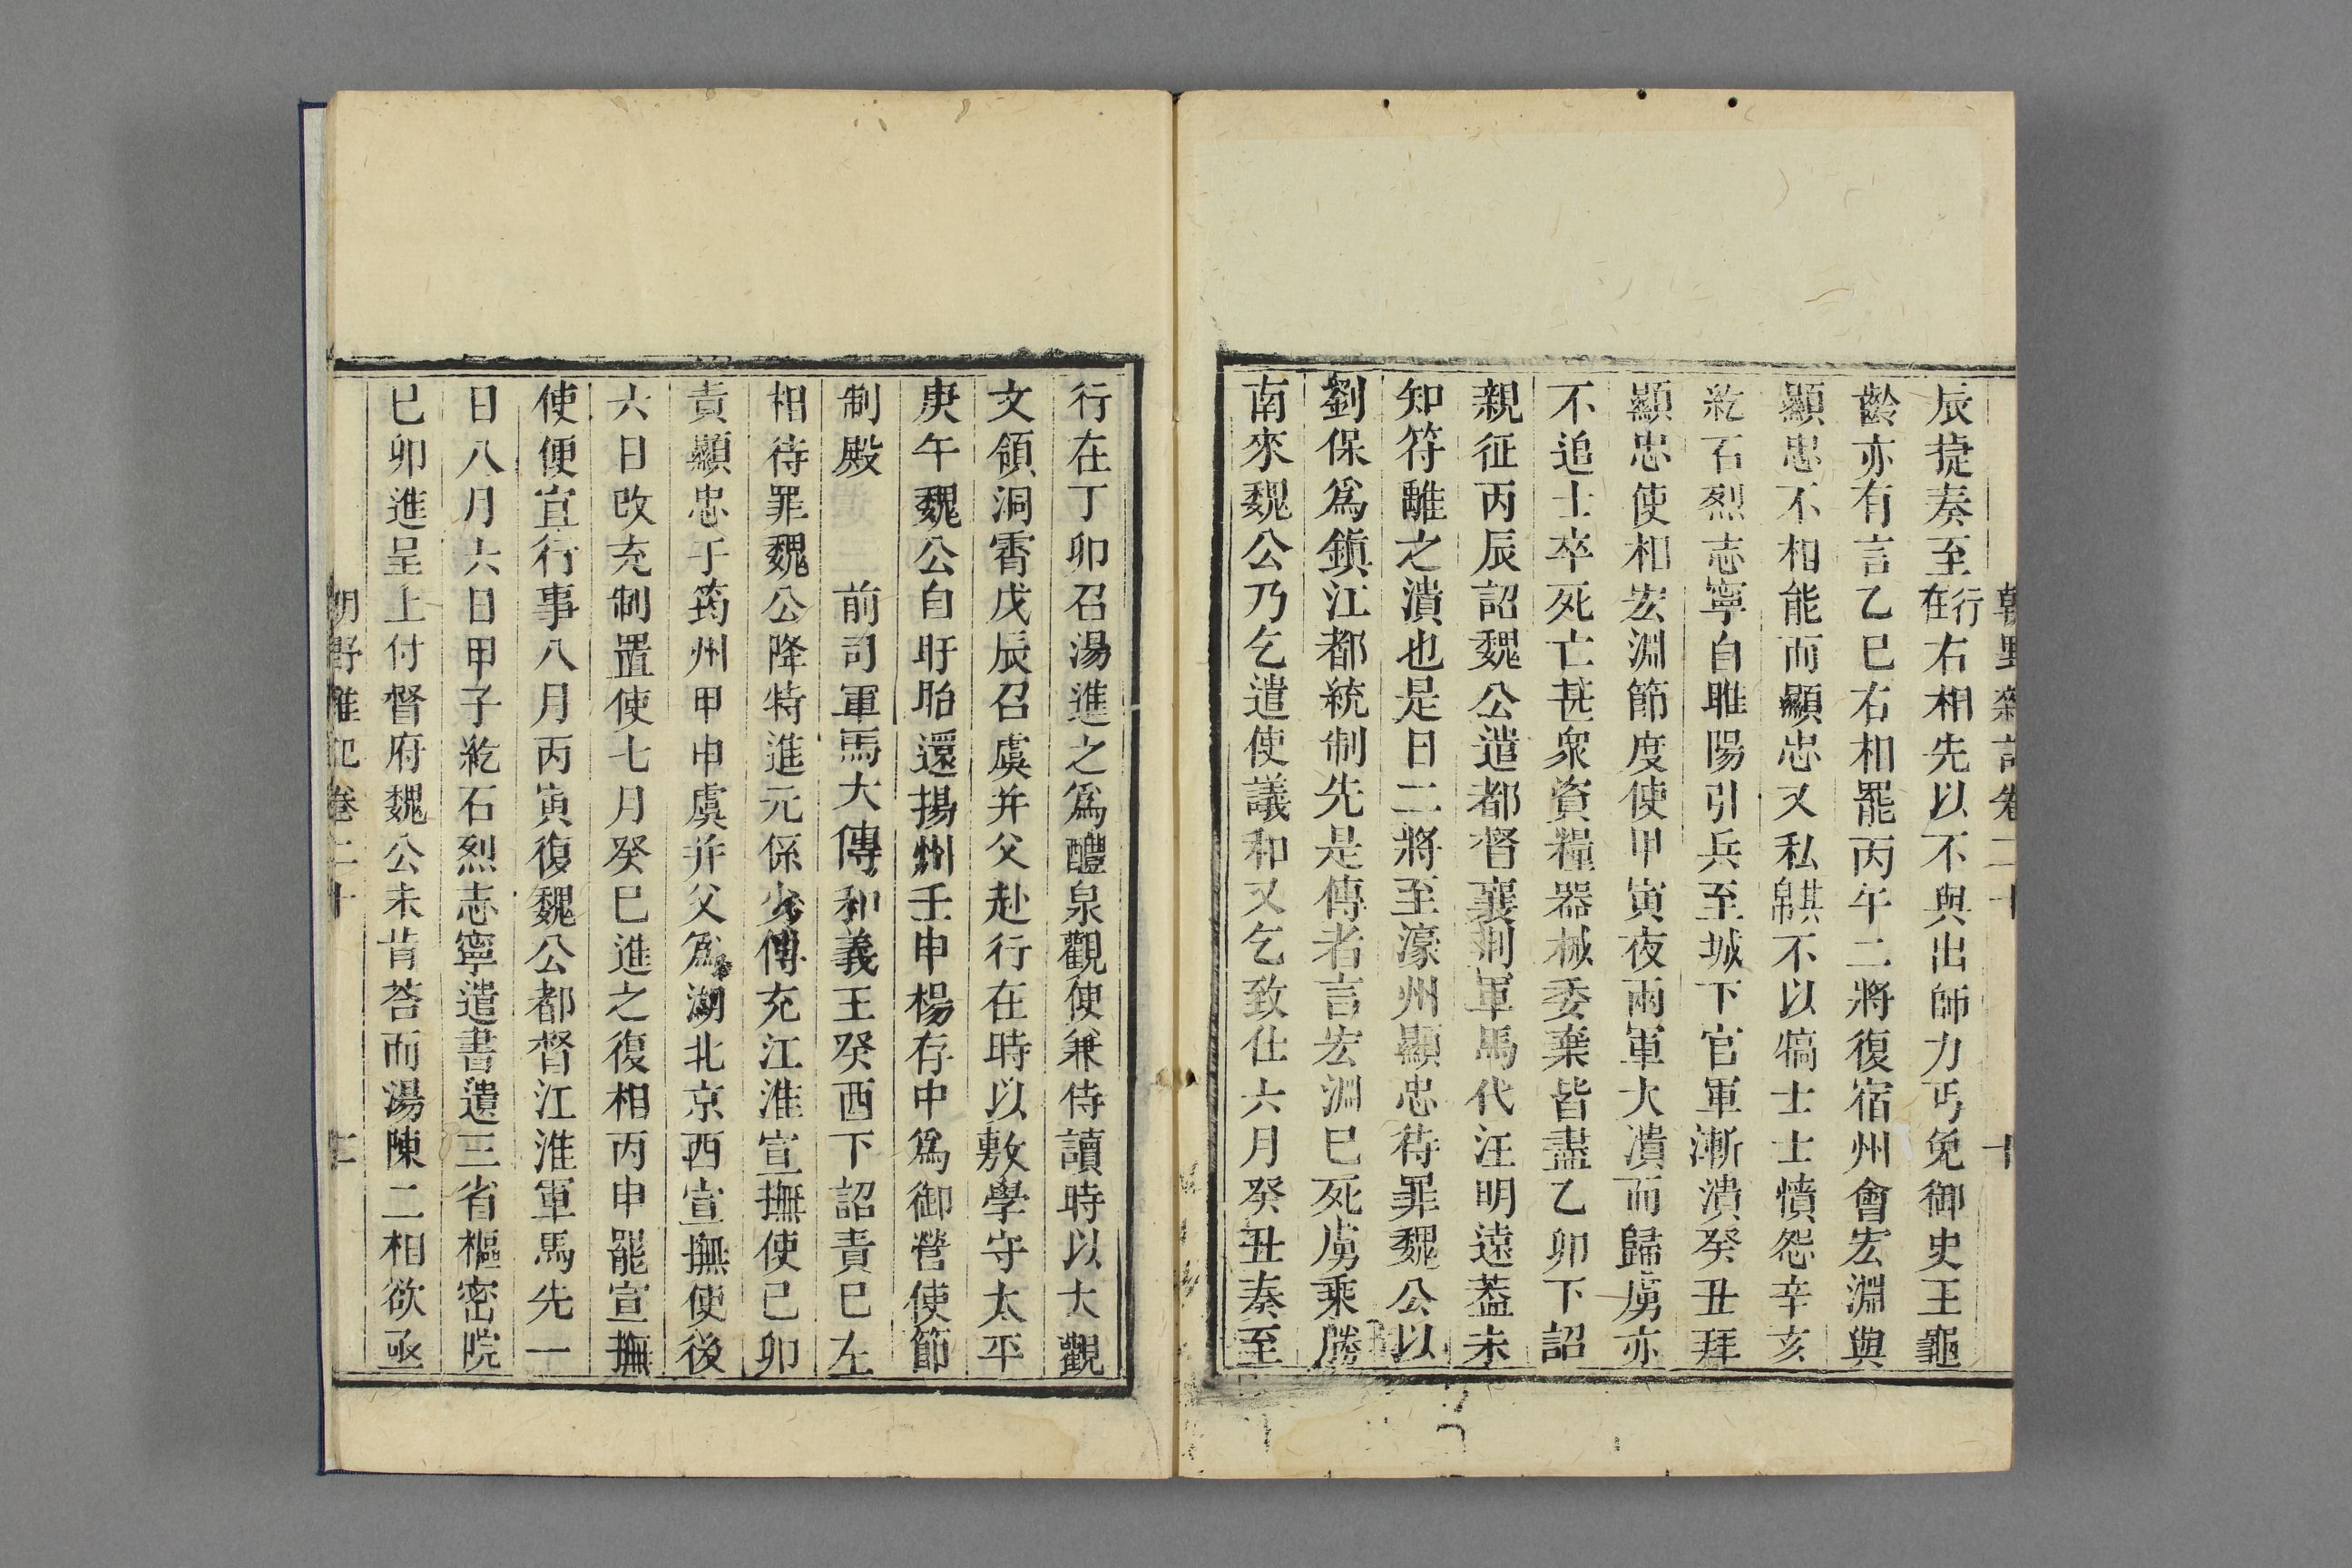 朝野雜記卷二十 十
辰捷奏至行在右相先以不與出師力丐免御史王龜
齡亦有言乙巳右相罷丙午二將復宿州會宏淵與
顯忠不相能而顯忠又私帑不以犒士士憤怨辛亥
紇石烈志寧自睢陽引兵至城下官軍漸潰癸丑拜
顯忠使相宏淵節度使甲寅夜兩軍大潰而歸虜亦
不追士卒死亡甚衆資糧器械委棄皆盡乙卯下詔
親征丙辰詔魏公遣都督襄荆軍馬代汪明遠葢未
知符離之潰也是日二將至濠州顯忠待罪魏公以
劉保爲鎭江都統制先是傳者言宏淵巳死虜乘勝
南來魏公乃乞遣使議和又乞致仕六月癸丑奏至
行在丁卯召湯進之爲醴泉觀使兼侍讀時以大觀
文領洞霄戊辰召虞并父赴行在時以敷學守太平
庚午魏公自盱眙還揚州壬申楊存中爲御營使節
制殿 前司軍馬大傅和義王癸酉下詔責巳左
相待罪魏公降特進元係少傅充江淮宣撫使己卯
責顯忠于筠州甲申虞并父爲湖北京西宣撫使後
六日改充制置使七月癸巳進之復相丙申罷宣撫
使便宜行事八月丙寅復魏公都督江淮軍馬先一
日八月六日甲子紇石烈志寧遣書遺三省樞密院
巳卯進呈上付督府魏公未肯荅而湯陳二相欲亟
朝野雜記卷二十